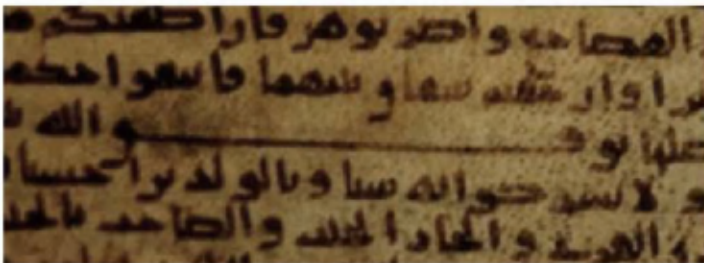 المضاجع واضربوهن فان اطعنكم
را وان خفتم شقاق بينهما فابعثوا حكما
هلها يوفق الله
و لا تشركوا به شيا وبالولدين احسنا
القربى والجار الجنب والصاحب بالجنب